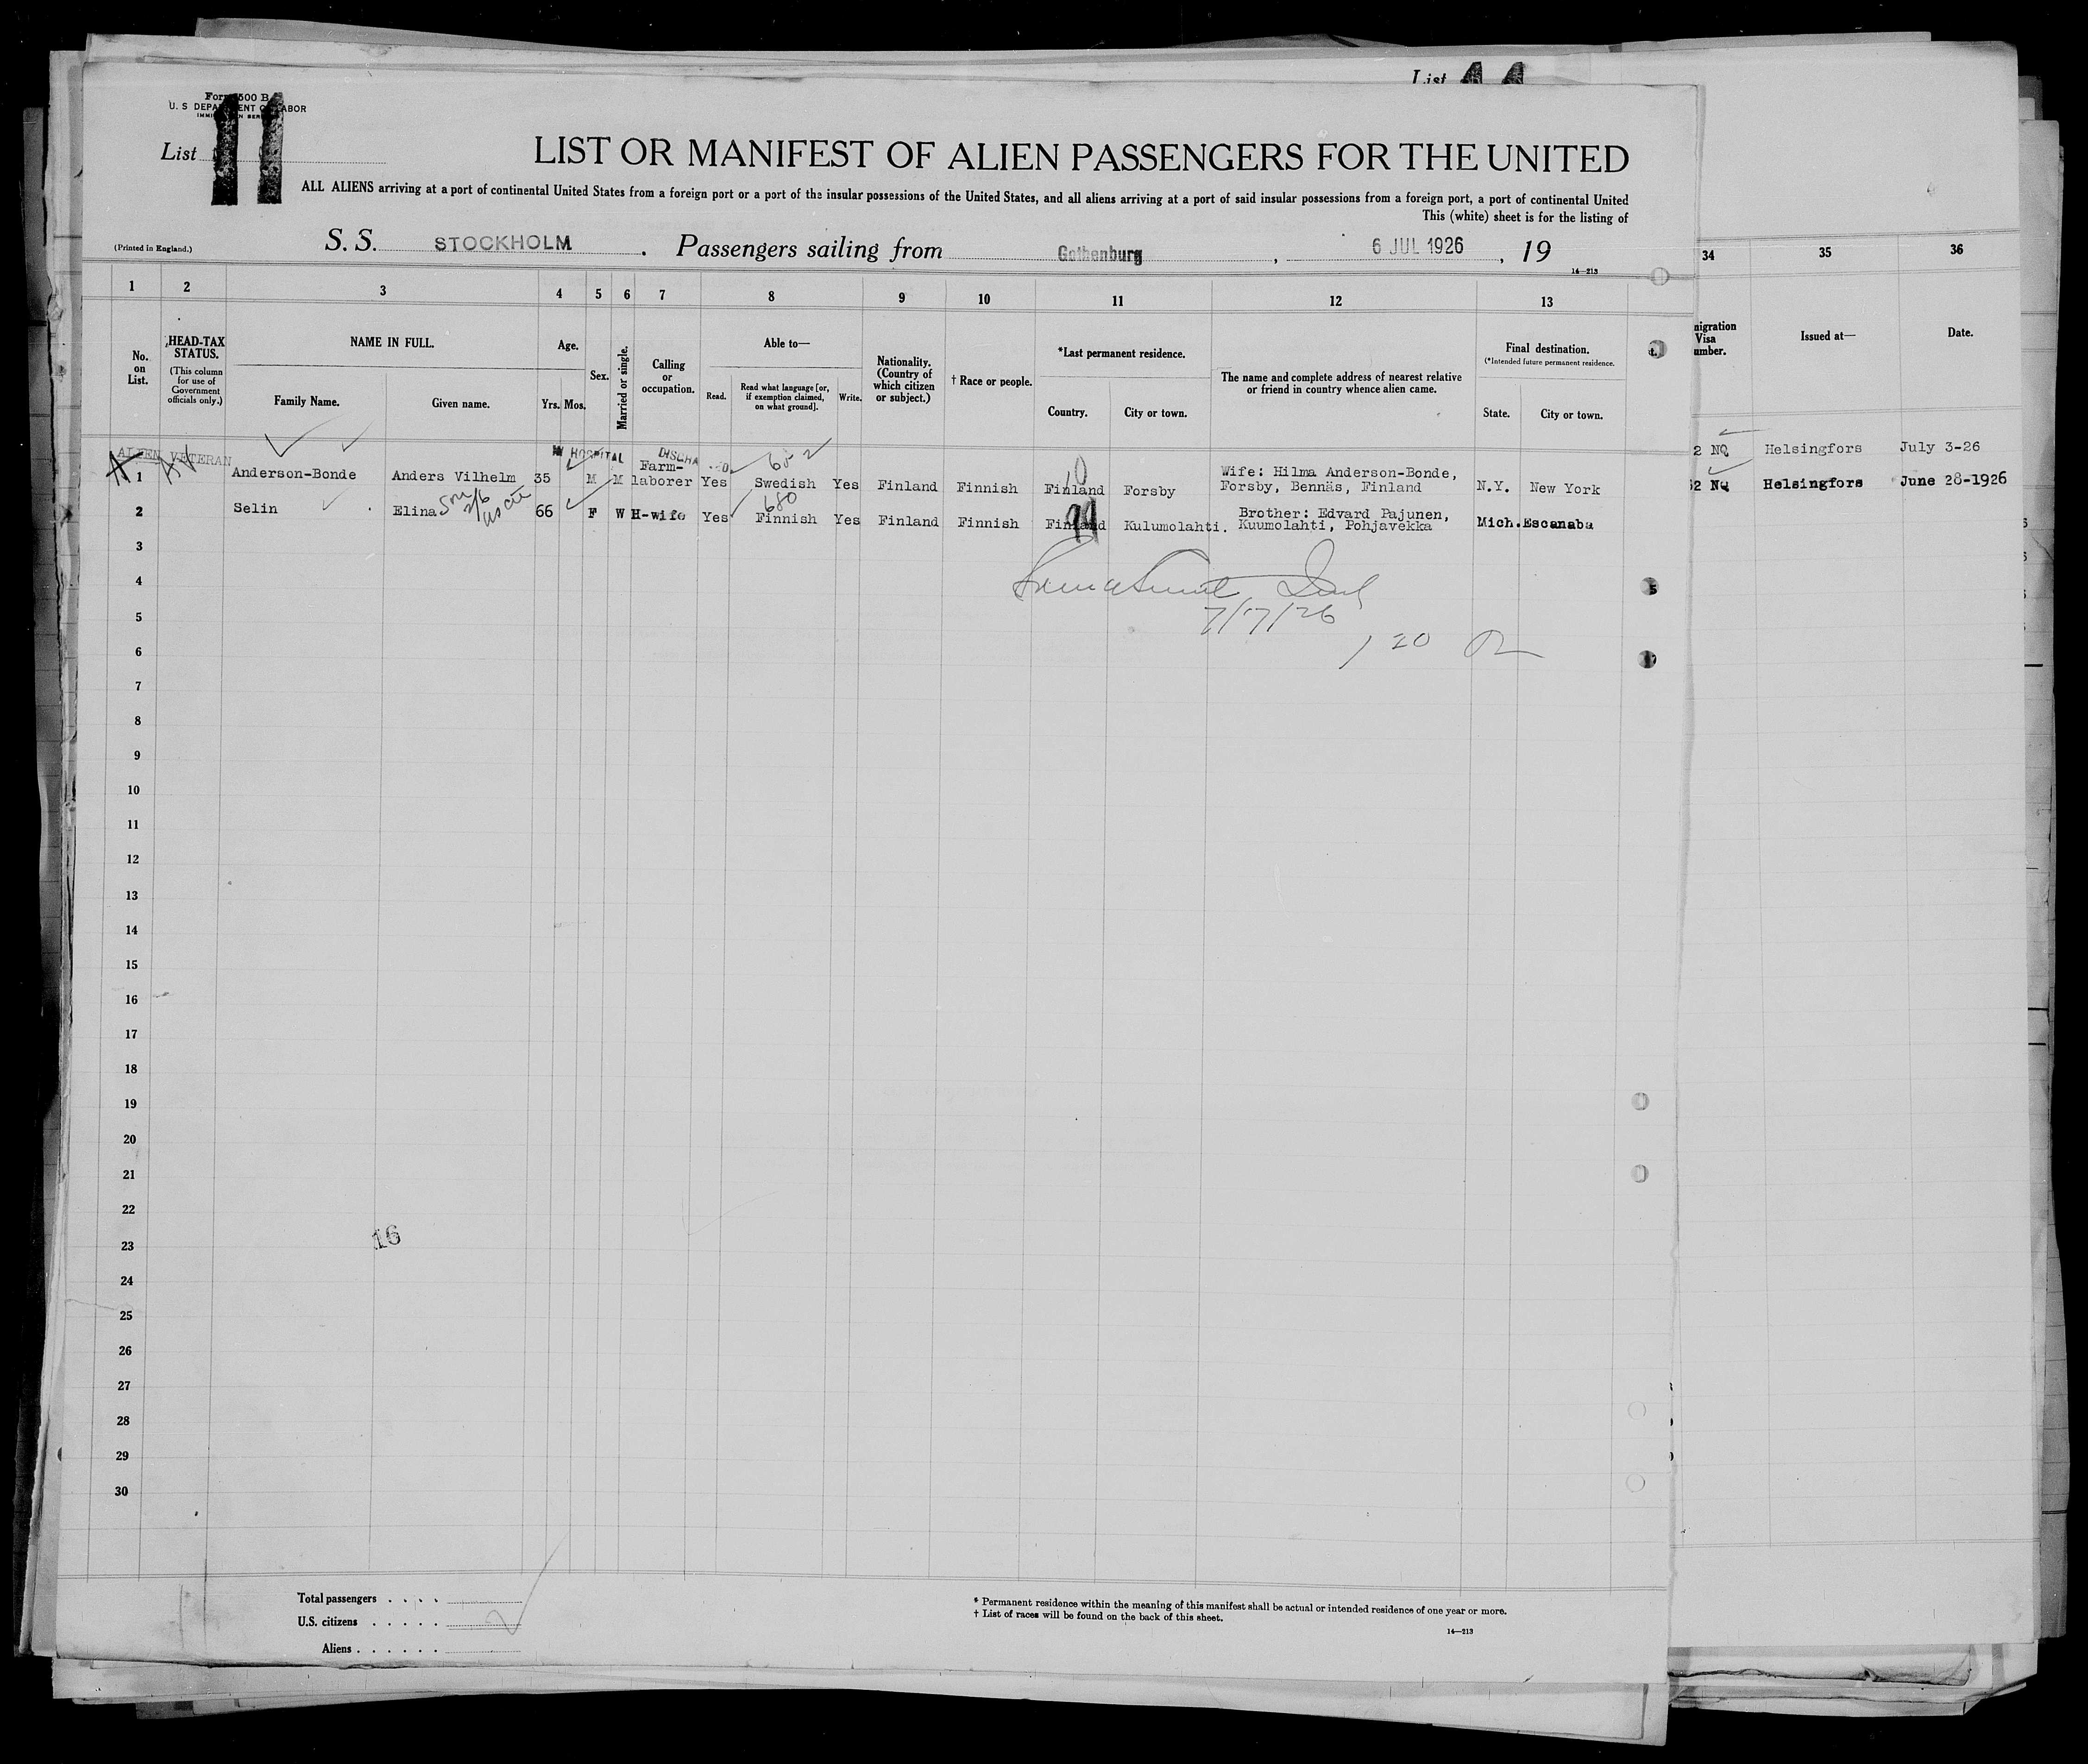 List
Form 500 B
U. S DEPARTMENT OF LABOR
IMMIGRATION SERVICE
List 11
LIST OR MANIFEST OF ALIEN PASSENGERS FOR THE UNITED
ALL ALIENS arriving at a port of continental United States from a foreign port or a port of the insular possessions of the United States, and all aliens arriving at a port of said insular possessions from a foreign port, a port of continental United
This (white) sheet is for the listing of
(Printed in England.)
S. S. STOCKHOLM. Passengers sailing from Gothenburg, 6 JUL 1926, 19
14—213
1 2 3 4 5 6 7 8 9 10 11 12 13 34 35 36
No. on List.
HEAD-TAX STATUS.
(This column for use of Government officials only.)
NAME IN FULL.
Family Name. Given name.
Age.
Yrs. Mos.
Sex.
Married or single.
Calling or occupation.
Able to—
Read. Read what language [or, if exemption claimed, on what ground]. Write.
Nationality. (Country of which citizen or subject.)
† Race or people.
*Last permanent residence.
Country. City or town.
The name and complete address of nearest relative or friend in country whence alien came.
Final destination.
(*Intended future permanent residence.
State. City or town.
nigration Visa umber.
Issued at—
Date.
ALIEN VETERAN
IN HOSPITAL DISCHA
1 Anderson-Bonde Anders Vilhelm 35 M M Farm-laborer Yes Swedish Yes Finland Finnish Finland Forsby Wife: Hilma Anderson-Bonde, Forsby, Bennäs, Finland N.Y. New York
2 NQ Helsingfors July 3-26
2 Selin Elina 66 F W H-wife Yes Finnish Yes Finland Finnish Finland Kulumolahti. Brother: Edvard Pajunen, Kuumolahti, Pohjavekka Mich. Escanaba
52 NQ Helsingfors June 28-1926
680
3
4
7/17/26
5
120
6
7
8
9
10
11
12
13
14
15
16
17
18
19
20
21
22
23
16
24
25
26
27
28
29
30
Total passengers . . . .
U.S. citizens . . . . .
Aliens . . . . . .
* Permanent residence within the meaning of this manifest shall be actual or intended residence of one year or more.
† List of races will be found on the back of this sheet.
14—213